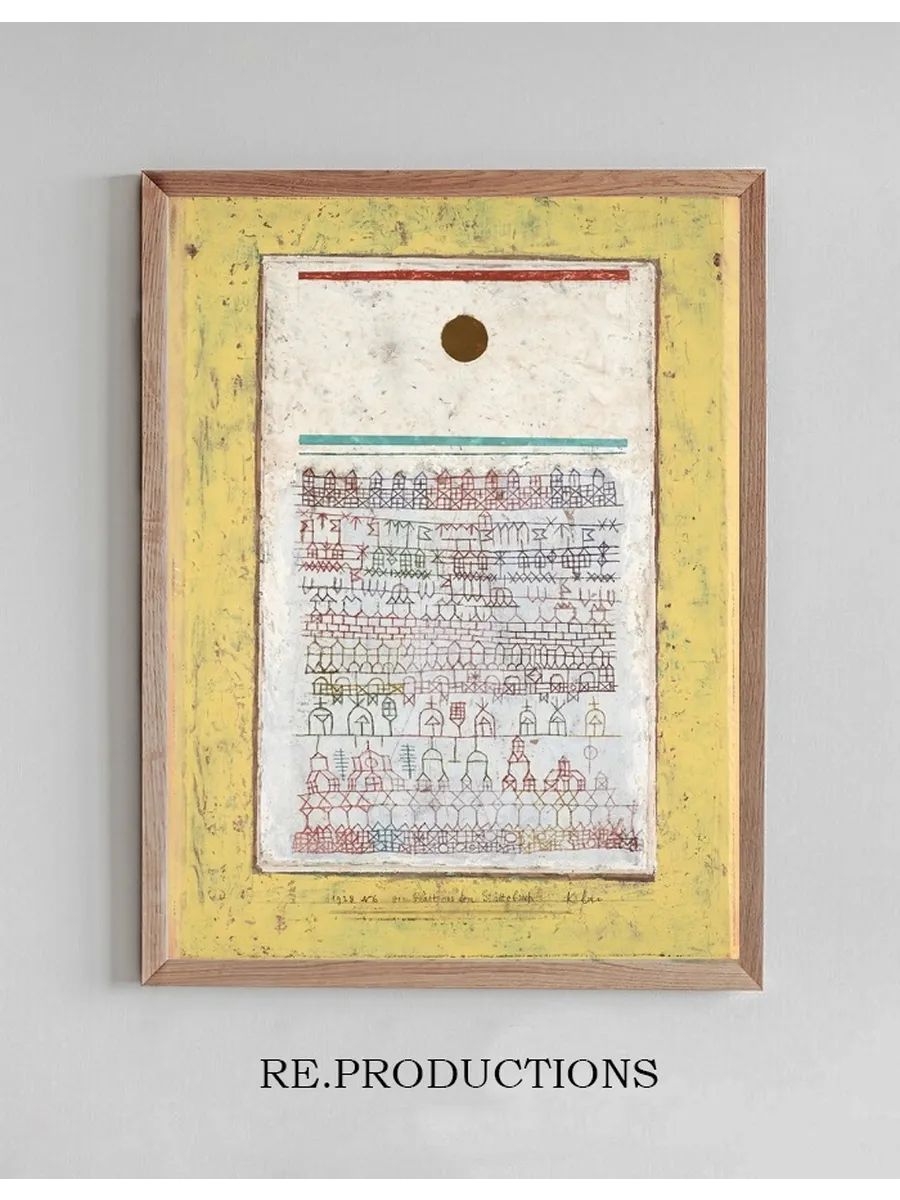 1928 N6 ein Blatt aus dem Städtebuch Klee
RE.PRODUCTIONS